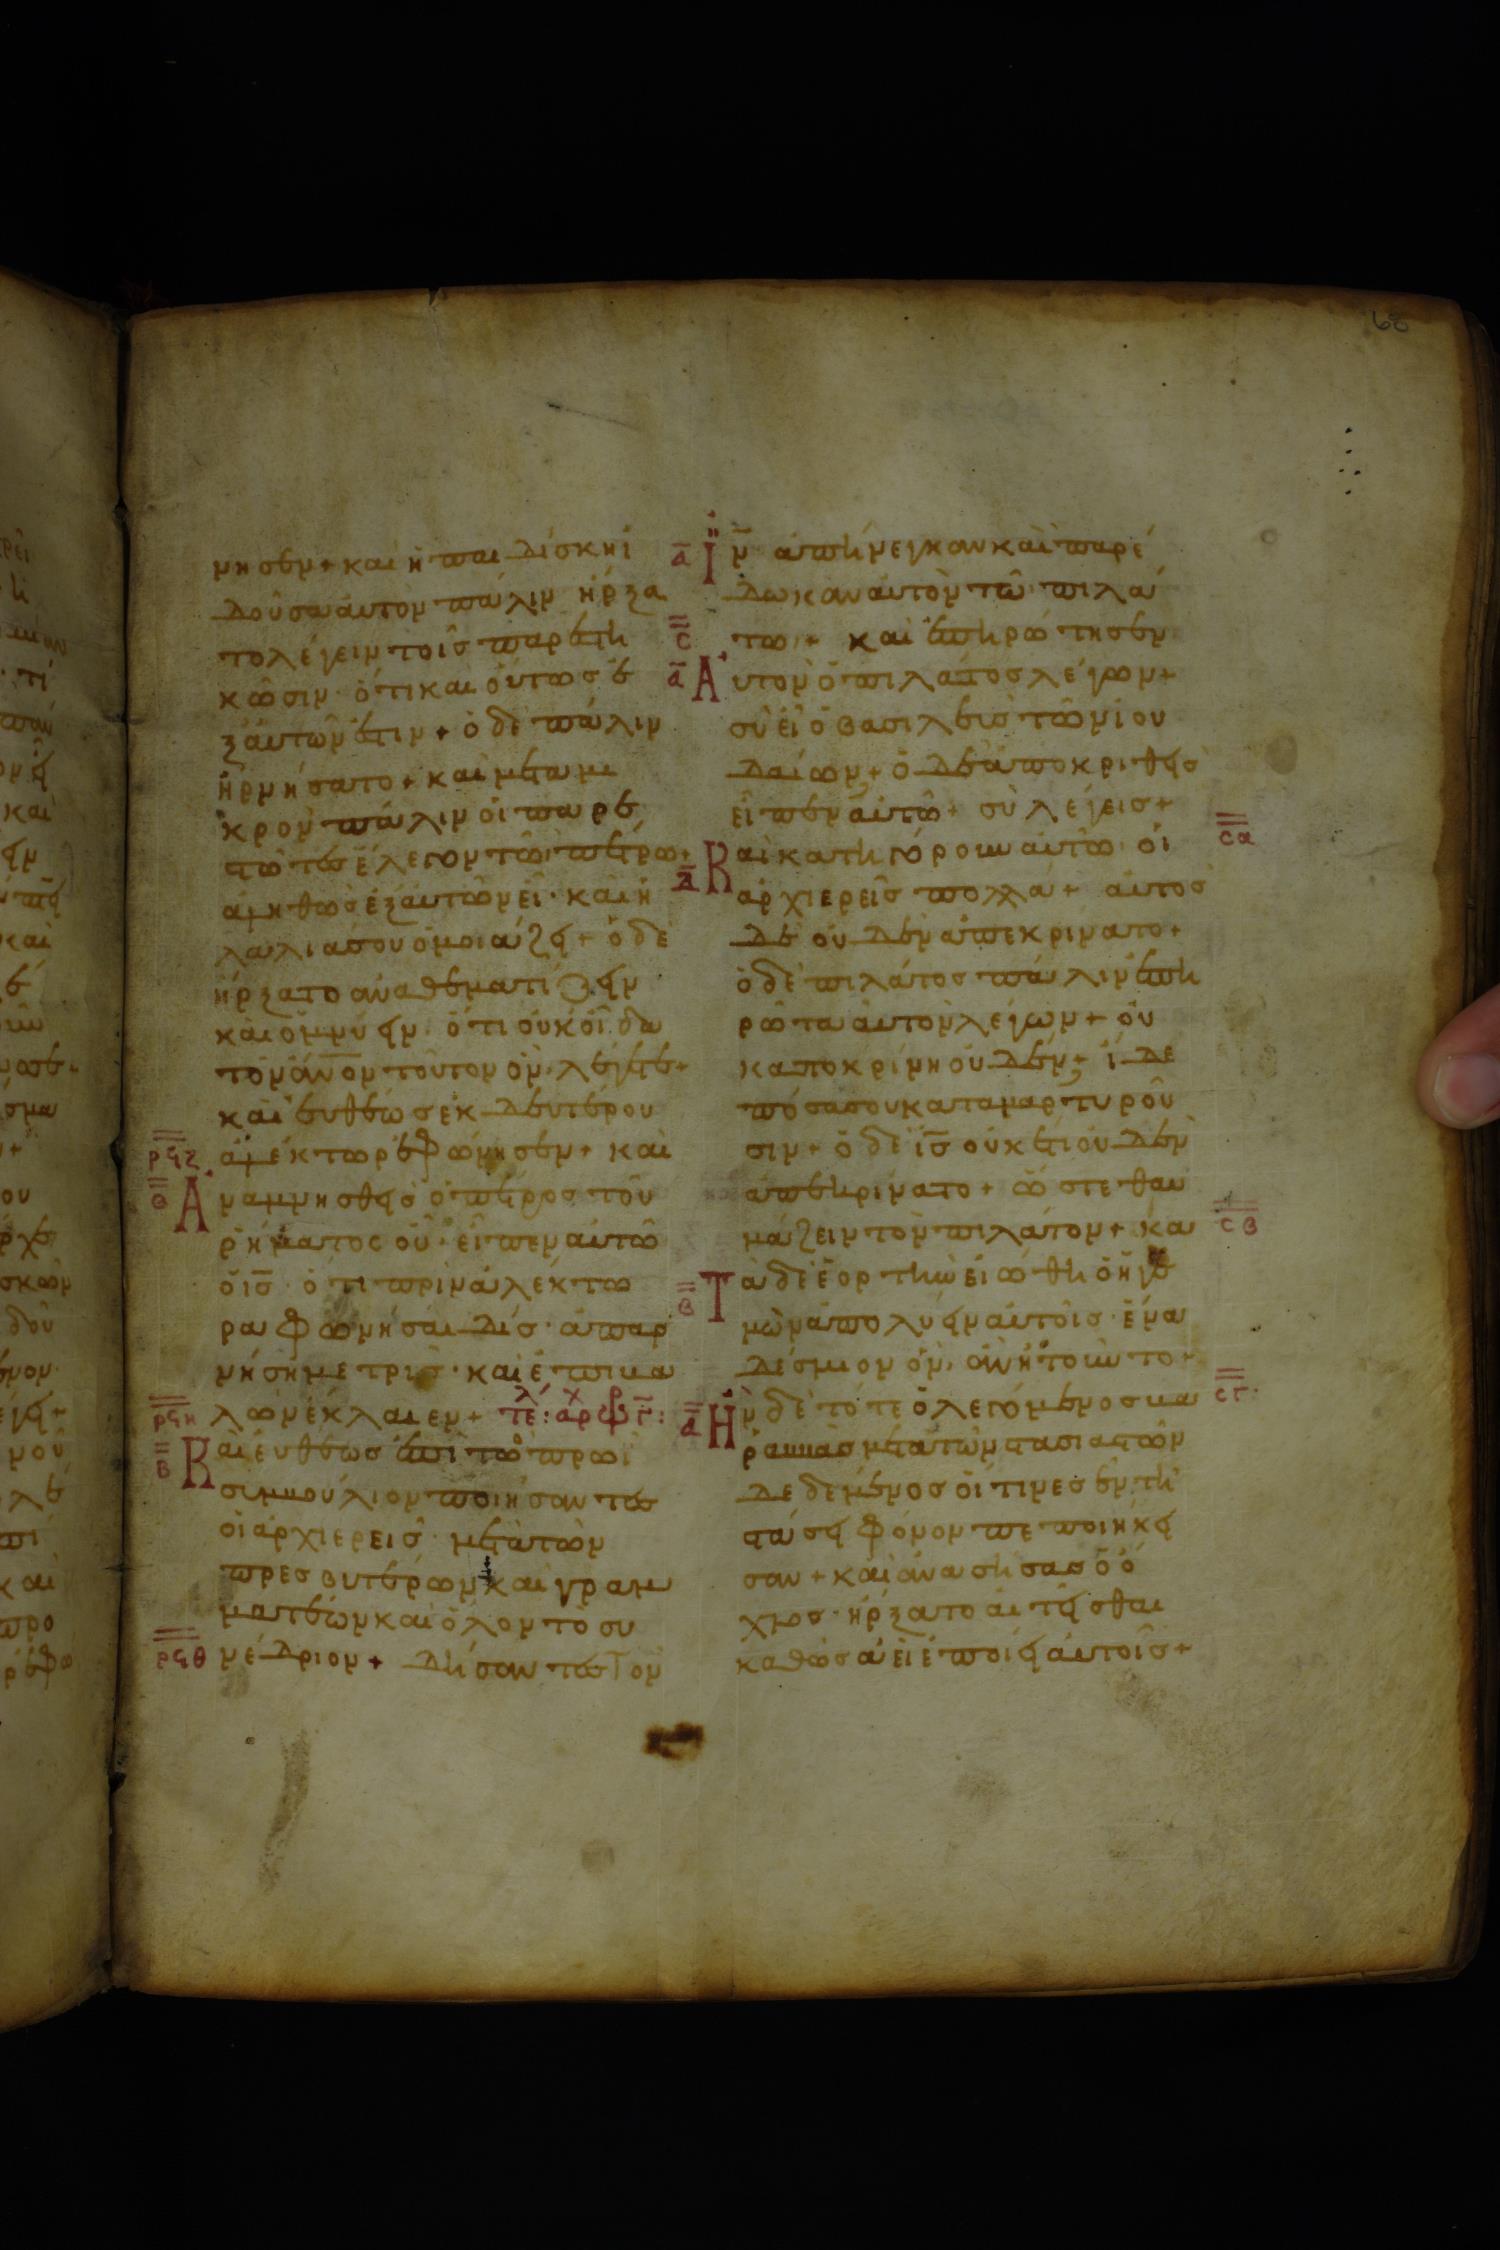 68
μησεν + και η παιδίσκη ϊ
δοῦσα ἀυτὸν πάλιν ἤρξα
το λέγειν τοῖς παρεστη
κῶσιν · ὅτι και ὁύτος ἐ
ξ ἀυτῶν ἐστιν + ὁ δὲ πάλιν
ἠρνήσατο + και μετα μι
κρὸν πάλιν ὁι παρε
στῶτες ἔλεγον τῶ πέτρω +
ἀληθῶς ἐξ ἀυτῶν εἶ · και ἡ
λαλιά σου ὁμοιάζει + ὁ δὲ
ἤρξατο ἀναθεματίζειν
και ὀμνύειν · ὅτι ὀυκ ὀῖδα
τὸν ἀνον τοῦτον ὃν λέγετε +
και ἐυθέως ἐκ δευτέρου
ρϟζ ἀλέκτωρ ἐφώνησεν + και
β Ἀναμνησθεὶς ὁ πέτρος τοῦ
ῥήματος οὗ εἶπεν ἀυτῶ
ὁ ις · ὅτι πρὶν ἀλέκτω
ρα φωνῆσαι δίς · ἀπαρ
νήση με τρίς · και ἐπιβα
ρϟη λὼν ἔκλαιεν + τε: αρχ λ
β Και ἐυθέως ἐπὶ τὸ πρωῒ
συμβούλιον ποιήσαντες
ὁι ἀρχιερεῖς · μετὰ τῶν
πρεσβυτέρων και γραμ
ματέων και ὅλον τὸ συ
ρϟθ νέδριον + δήσαντες τον
α Ιν ἀπήνεγκαν και παρέ
δωκαν ἀυτὸν τῶ πιλά
ς τω + και ἐπηρώτησεν
α Ἀυτὸν ὁ πιλάτος λέγων +
σὺ εἶ ὁ βασιλεὺς τῶν ϊου
δαίων + ὁ δὲ ἀποκριθεὶς
εἶπεν ἀυτῶ + σὺ λέγεις +
σα
δ Και κατηγόρουν ἀυτῶ ὁι
ἀρχιερεῖς πολλά + ἀυτὸς
δὲ ὀυδὲν ἀπεκρίνατο +
ὁ δὲ πιλάτος πάλιν ἐπη
ρώτα ἀυτὸν λέγων + ὀυ
κ ἀποκρίνη ὀυδέν; ἴδε
πόσα σου καταμαρτυροῦ
σιν + ὁ δὲ ις ὀυκέτι ὀυδὲν
ἀπεκρίνατο + ὥστε θαυ
μάζειν τὸν πιλάτον + κα
σβ
β Τὰ δὲ ἑορτὴν ἐιώθη ὁ ἡγε
μὼν ἀπολύειν ἀυτοῖς · ἕνα
δέσμιον ὃν ἂν ἠτοῦντο +
σγ
δ Ἦν δὲ τότε ὁ λεγόμενος βα
ραββᾶς μετὰ τῶν στασιαστῶν
δεδεμένος ὅιτινες ἐν τῆ
στάσει φόνον πεποιήκει
σαν + και ἀναβοήσας ὁ ὄ
χλος · ἤρξατο ἀιτεῖσθαι
καθὼς ἀεὶ ἐποίει ἀυτοῖς +